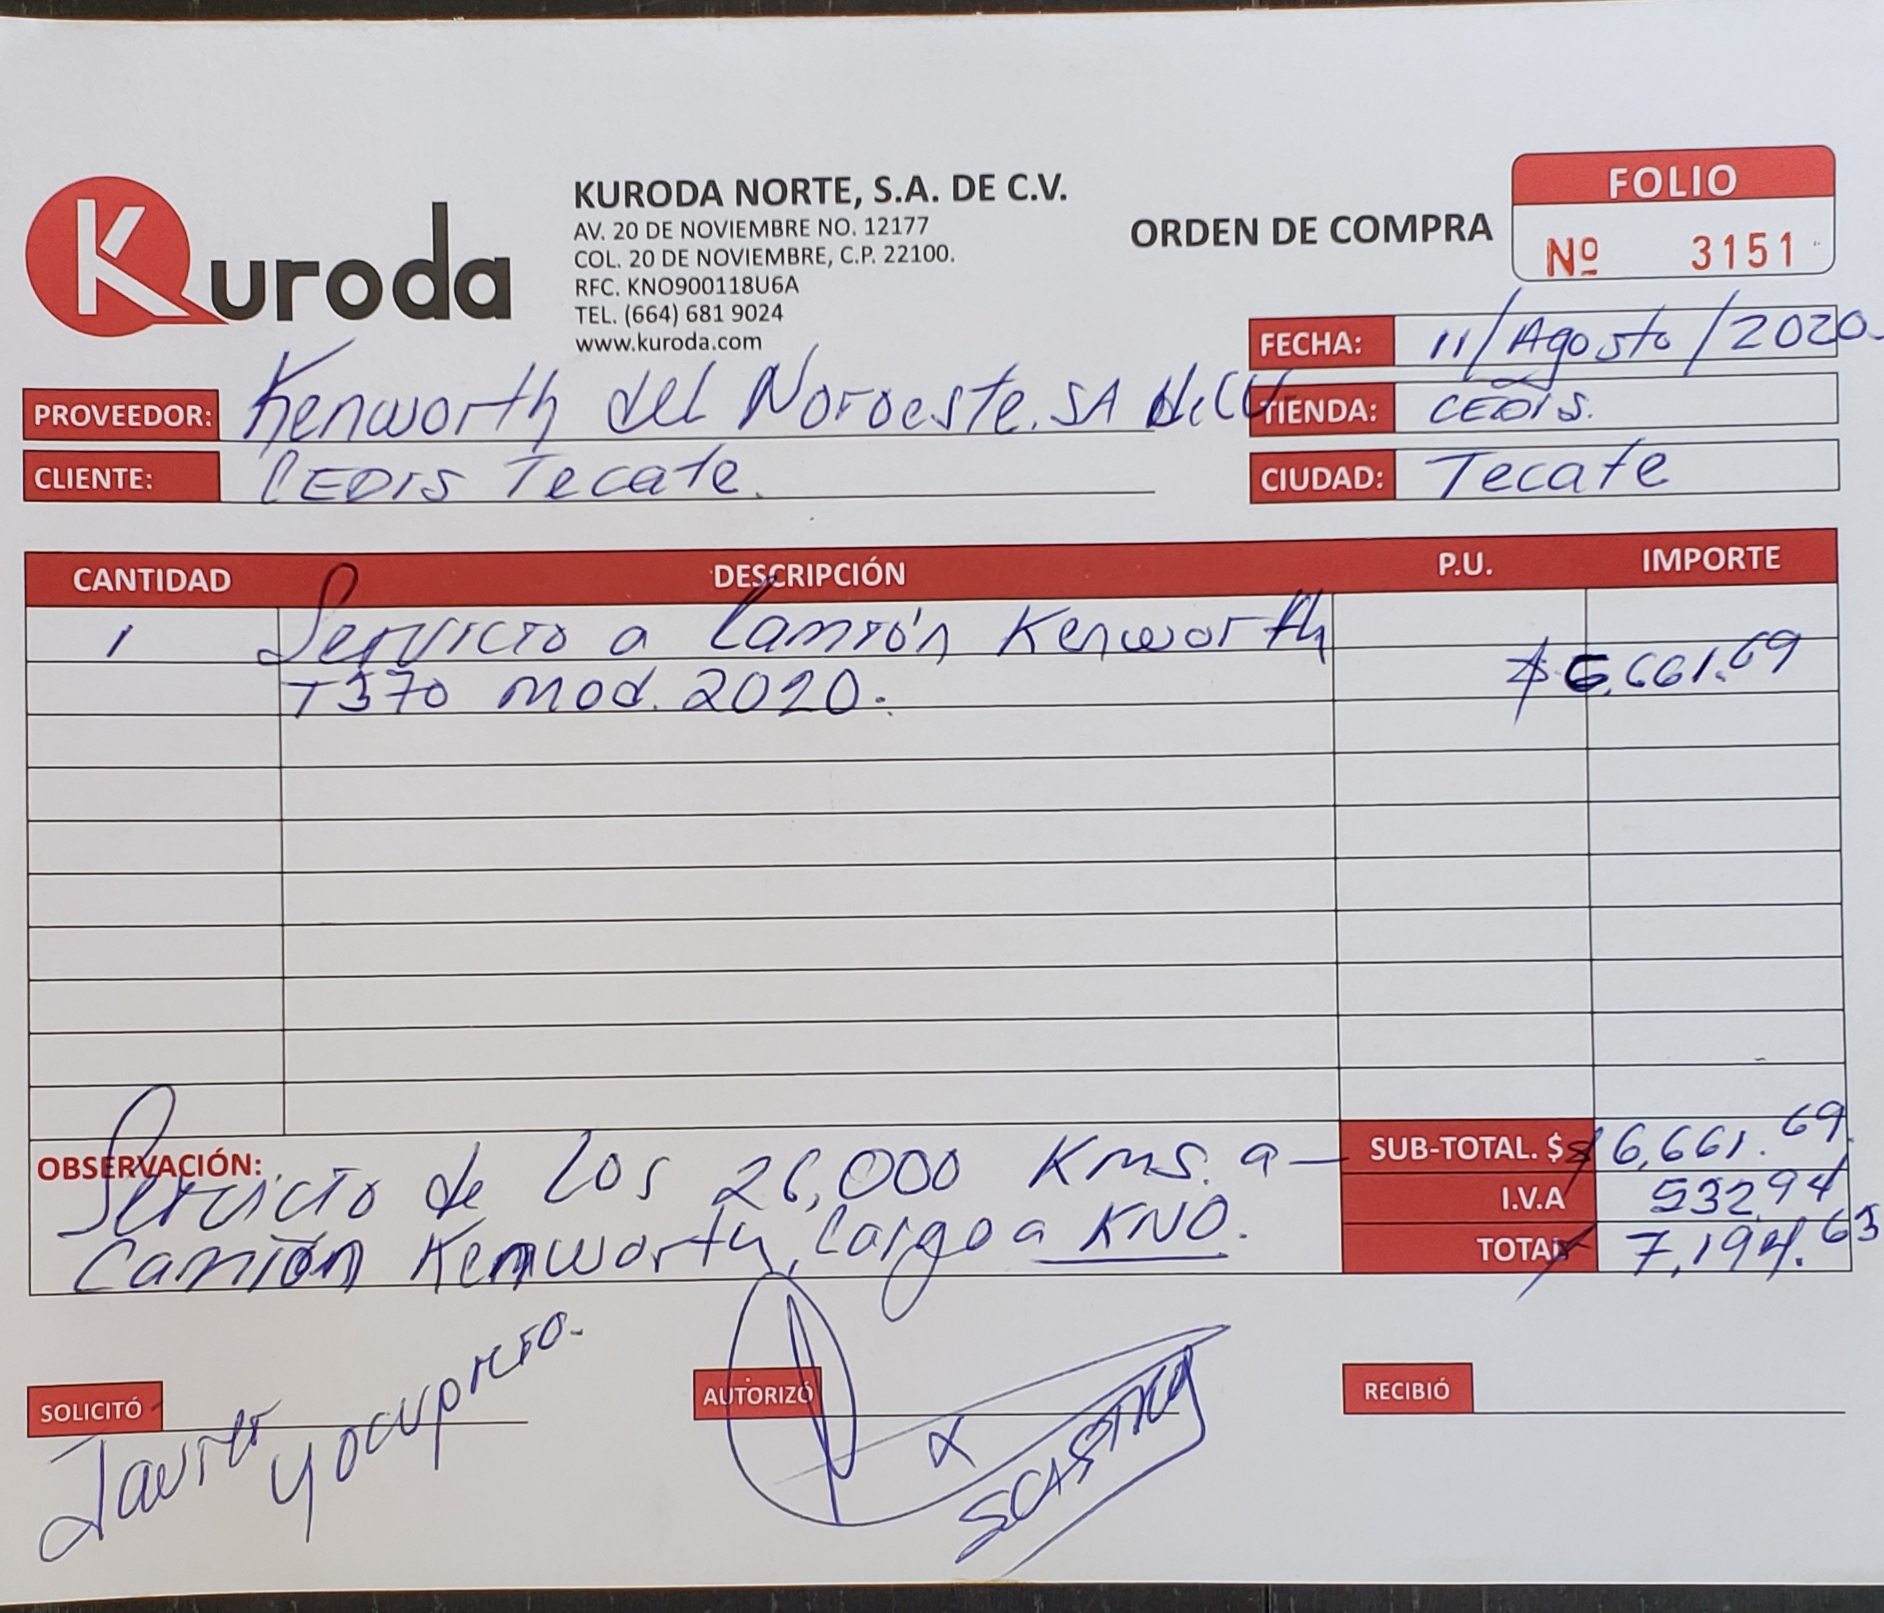 Kuroda
KURODA NORTE, S.A. DE C.V.
AV. 20 DE NOVIEMBRE NO. 12177
COL. 20 DE NOVIEMBRE, C.P. 22100.
RFC. KNO900118U6A
TEL. (664) 681 9024
www.kuroda.com
ORDEN DE COMPRA
FOLIO
Nº 3151
FECHA: 11/Agosto/2020.
PROVEEDOR: Kenworth del Noroeste. SA de CV.
TIENDA: CEDIS.
CLIENTE: CEDIS Tecate.
CIUDAD: Tecate
CANTIDAD DESCRIPCIÓN P.U. IMPORTE
1 Servicio a Camión Kenworth
T370 Mod. 2020. $6,661.69
OBSERVACIÓN: Servicio de los 26,000 Kms. a
Camión Kenworth, Cargo a KNO.
SUB-TOTAL. $ $6,661.69
I.V.A 532.94
TOTAL 7,194.63
SOLICITÓ
Javier Yocupicio.
AUTORIZÓ
RECIBIÓ